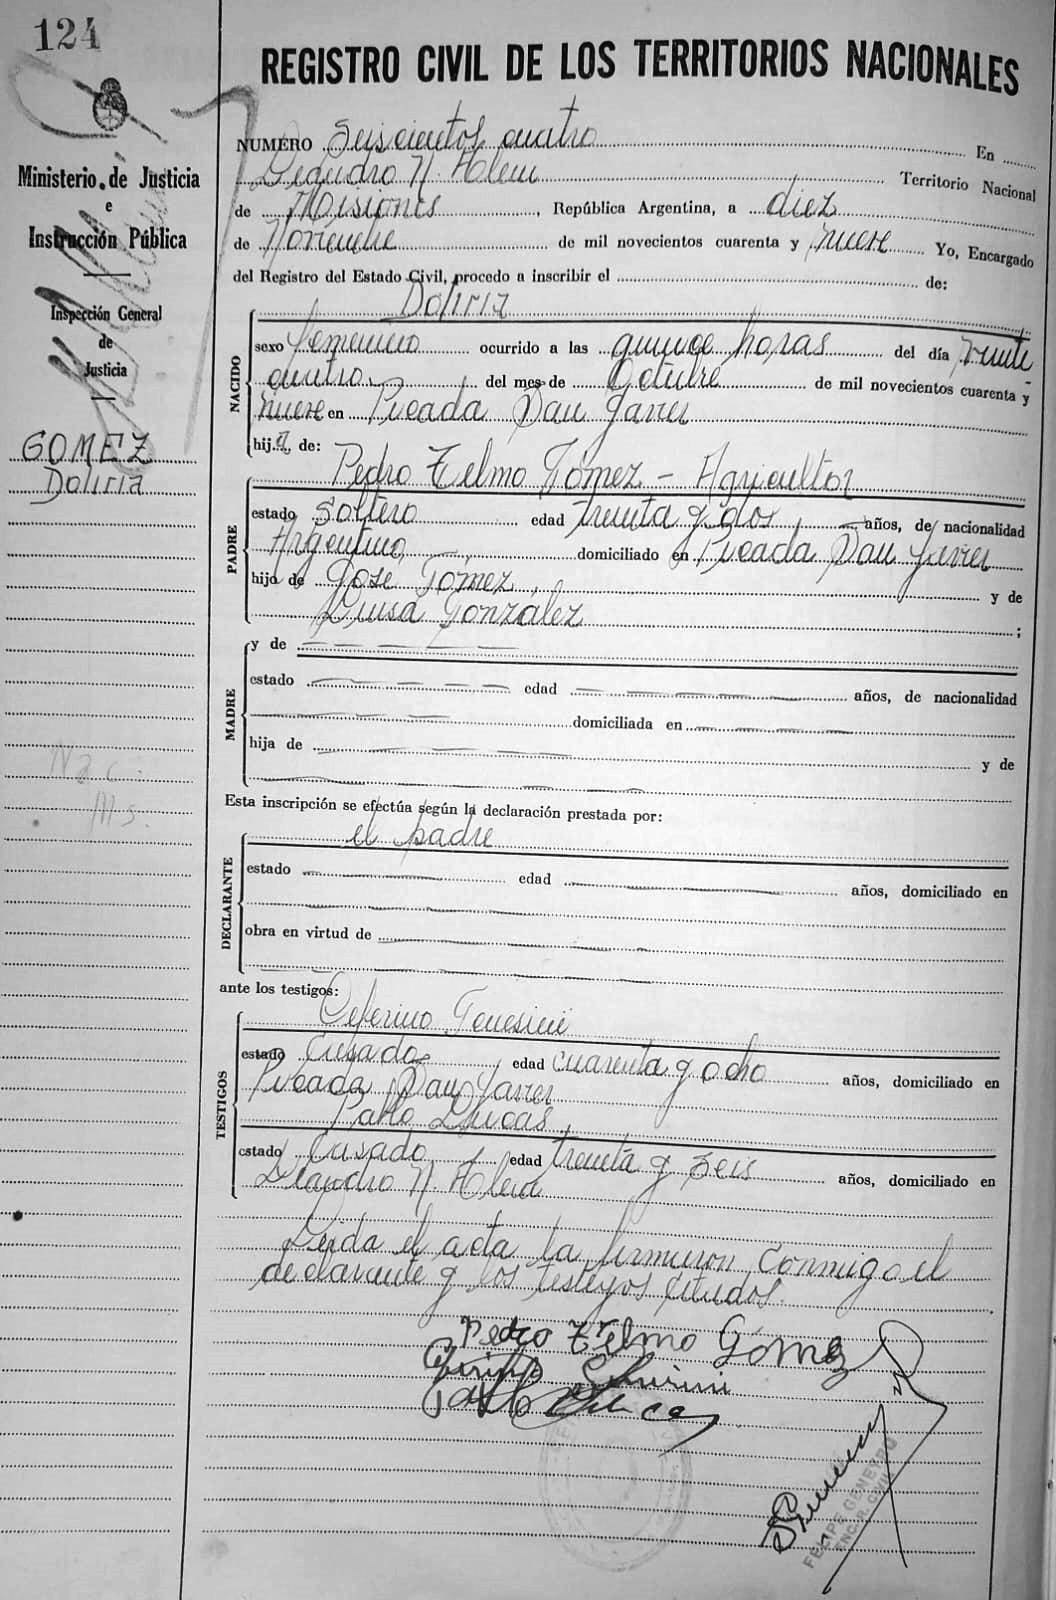 124
REGISTRO CIVIL DE LOS TERRITORIOS NACIONALES
Ministerio de Justicia
e
Instrucción Pública
Inspección General
de
Justicia
GOMEZ
Doliria
NUMERO Seiscientos cuatro En
Leandro N. Alem Territorio Nacional
de Misiones, República Argentina, a diez
de Noviembre de mil novecientos cuarenta y nueve Yo, Encargado
del Registro del Estado Civil, procedo a inscribir el de:
Doliria
NACIDO
sexo femenino ocurrido a las quince horas del día veinte
cuatro del mes de Octubre de mil novecientos cuarenta y
nueve en Picada San Javier
hija de:
Pedro Telmo Gómez - Agricultor
PADRE
estado soltero edad treinta y dos años, de nacionalidad
Argentino domiciliado en Picada San Javier
hijo de José Gómez y de
Luisa González ;
MADRE
y de
estado edad años, de nacionalidad
domiciliada en
hija de y de
Nac.
Ms.
Esta inscripción se efectúa según la declaración prestada por:
el padre
DECLARANTE
estado edad años, domiciliado en
obra en virtud de
ante los testigos:
Ceferino
TESTIGOS
estado Casado edad cuarenta y ocho años, domiciliado en
Picada San Javier
Pablo
estado Casado edad treinta y seis años, domiciliado en
Leandro N. Alem
Leida el acta la firmaron conmigo el
declarante y los testigos citados.
Pedro Telmo Gómez
FELIPE GENETRO
ENC. R. CIVIL